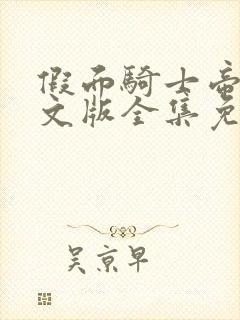 假面騎士
文版全集免
吴京早